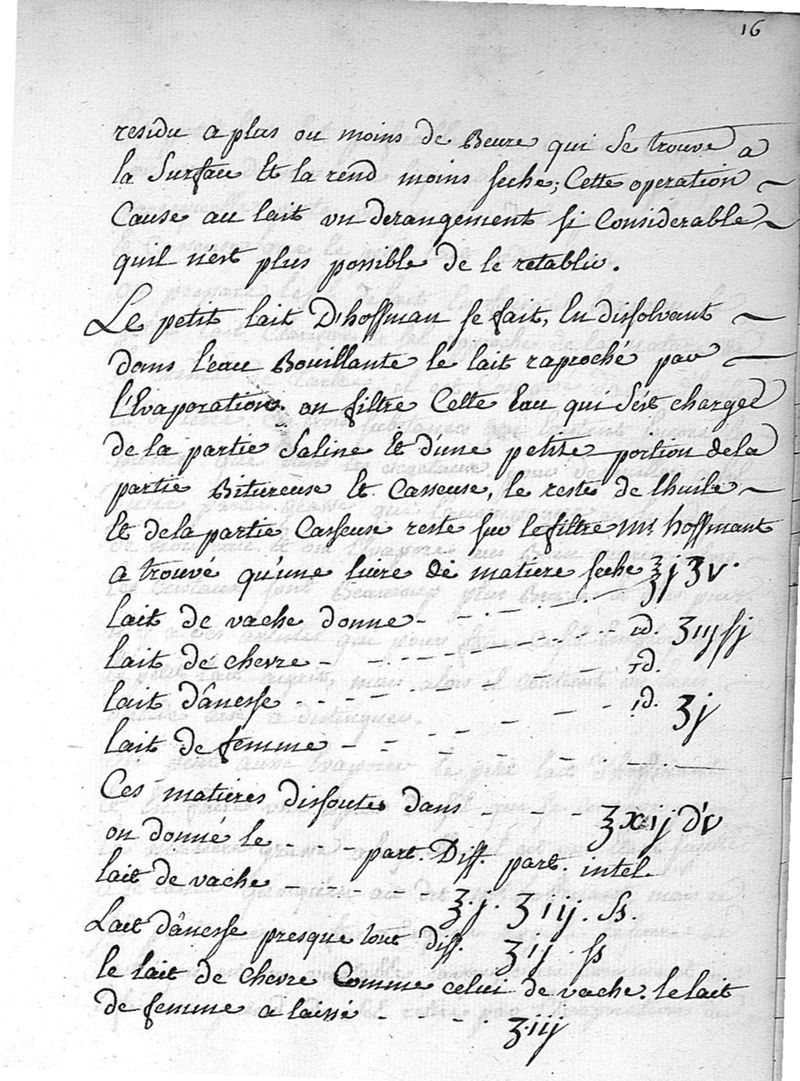 16
residu a plus ou moins de Beure qui se trouve a
la Surface Et la rend moins seche; Cette operation
Cause au lait un derangement si Considerable
quil n'est plus possible de le retablir.
Le petit lait D'hoffman se fait, En dissolvant
dans l'eau Bouillante le lait raproché par
l'Evaporation. on filtre Cette Eau qui s'est chargée
de la partie Saline Et d'une petite portion de la
partie Bitureuse Et Casseuse, le reste de l'huile
Et de la partie Casseuse reste sur le filtre Mr. hoffmant
a trouvé qu'une livre de matiere seche ℥j ʒv.
lait de vache donne - - - - id. ʒiij ßj
lait de chevre - - - - id.
lait d'ânesse - - - - id. ʒj
lait de femme - - - -
Ces matieres dissoutes dans - - - ℥xij d'v
on donné le - - - part. Diss. part. intel.
lait de vache - - - - ʒ.j. ʒiij. ßs.
Lait d'ânesse presque tout diss. ʒij. ßs
le lait de chevre Comme celui de vache. le lait
de femme a laissé - - - - ʒ.iij